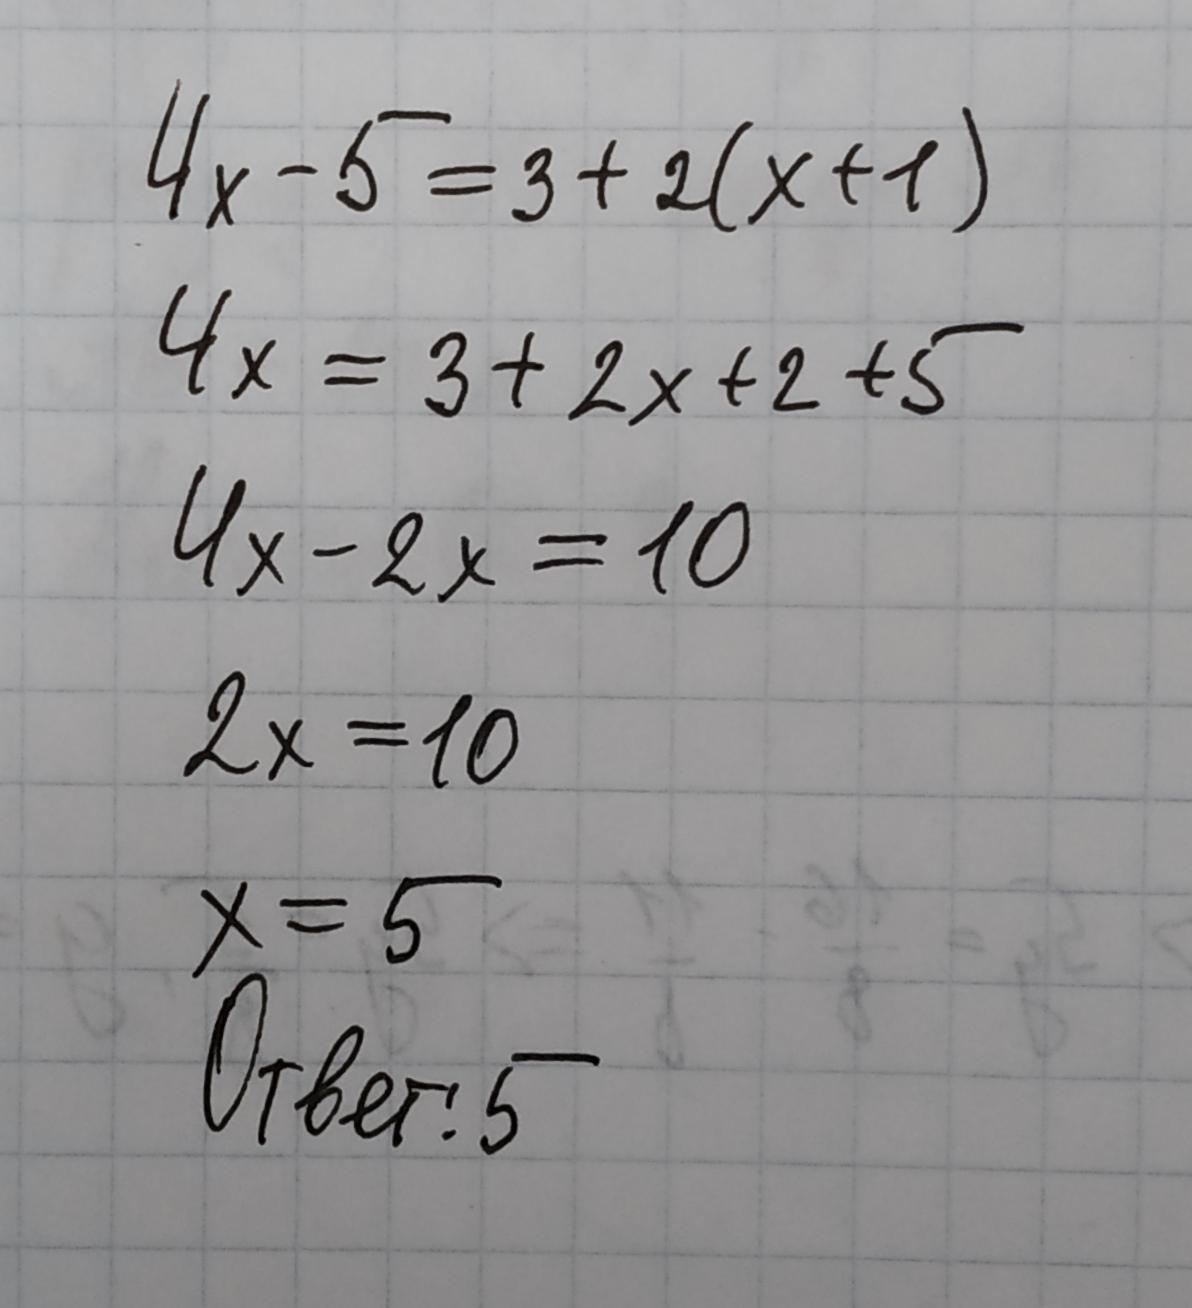 4x-5=3+2(x+1)
4x=3+2x+2+5
4x-2x=10
2x=10
x=5
Ответ:5